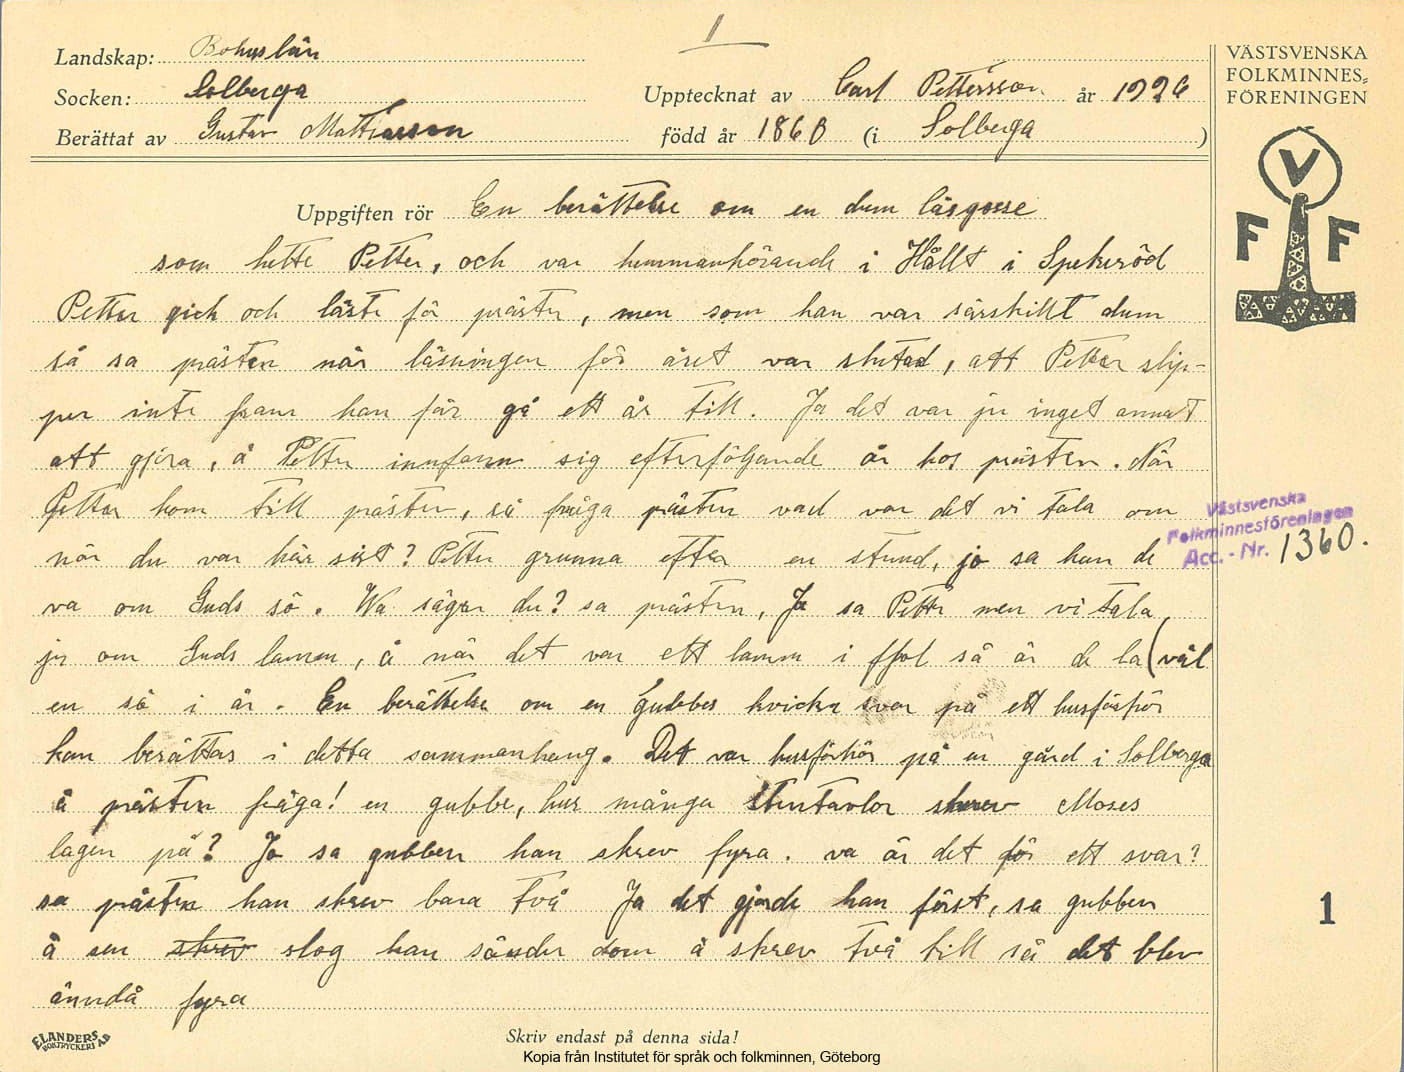 1
Landskap: Bohuslän
Socken: Solberga
Upptecknat av Carl Pettersson år 1926
Berättat av Gustav Mattiasson
född år 1868 (i Solberga)
VÄSTSVENSKA
FOLKMINNES-
FÖRENINGEN
V
F F
Uppgiften rör En berättelse om en dum läsgosse
som hette Petter, och var hemmanhörande i Hållt i Spekeröd
Petter gick och läste för prästen, men som han var särskillt dum
så sa prästen när läsningen för året var slutad, att Petter slip-
per inte fram han får gå ett år till. Ja det var ju inget annat
att gjöra, å Petter innfann sig efterföljande år hos prästen. När
Petter kom till prästen, så fråga prästen vad var det vi tala om
när du var här sist? Petter grunna efter en stund, jo sa han de
va om Guds sö. Va säger du? sa prästen, Ja sa Petter men vi tala
ju om Guds lamm, å när det var ett lamm i fjol så är de la (väl
en sö i år. En berättelse om en Gubbes kvicka svar på ett husförhör
kan berättas i detta sammanhang. Det var husförhör på en gård i Solberga
å prästen fråga! en gubbe, hur många stentavlor skrev Moses
lagen på? Jo sa gubben han skrev fyra. va är det för ett svar?
sa prästen han skrev bara två Ja det gjorde han först, sa gubben
å sen skrev slog han sönder dom å skrev två till så det blev
änndå fyra
Västsvenska
Folkminnesföreningen
Acc.-Nr. 1360.
1
ELANDERS
BOKTRYCKERI AB
Skriv endast på denna sida!
Kopia från Institutet för språk och folkminnen, Göteborg